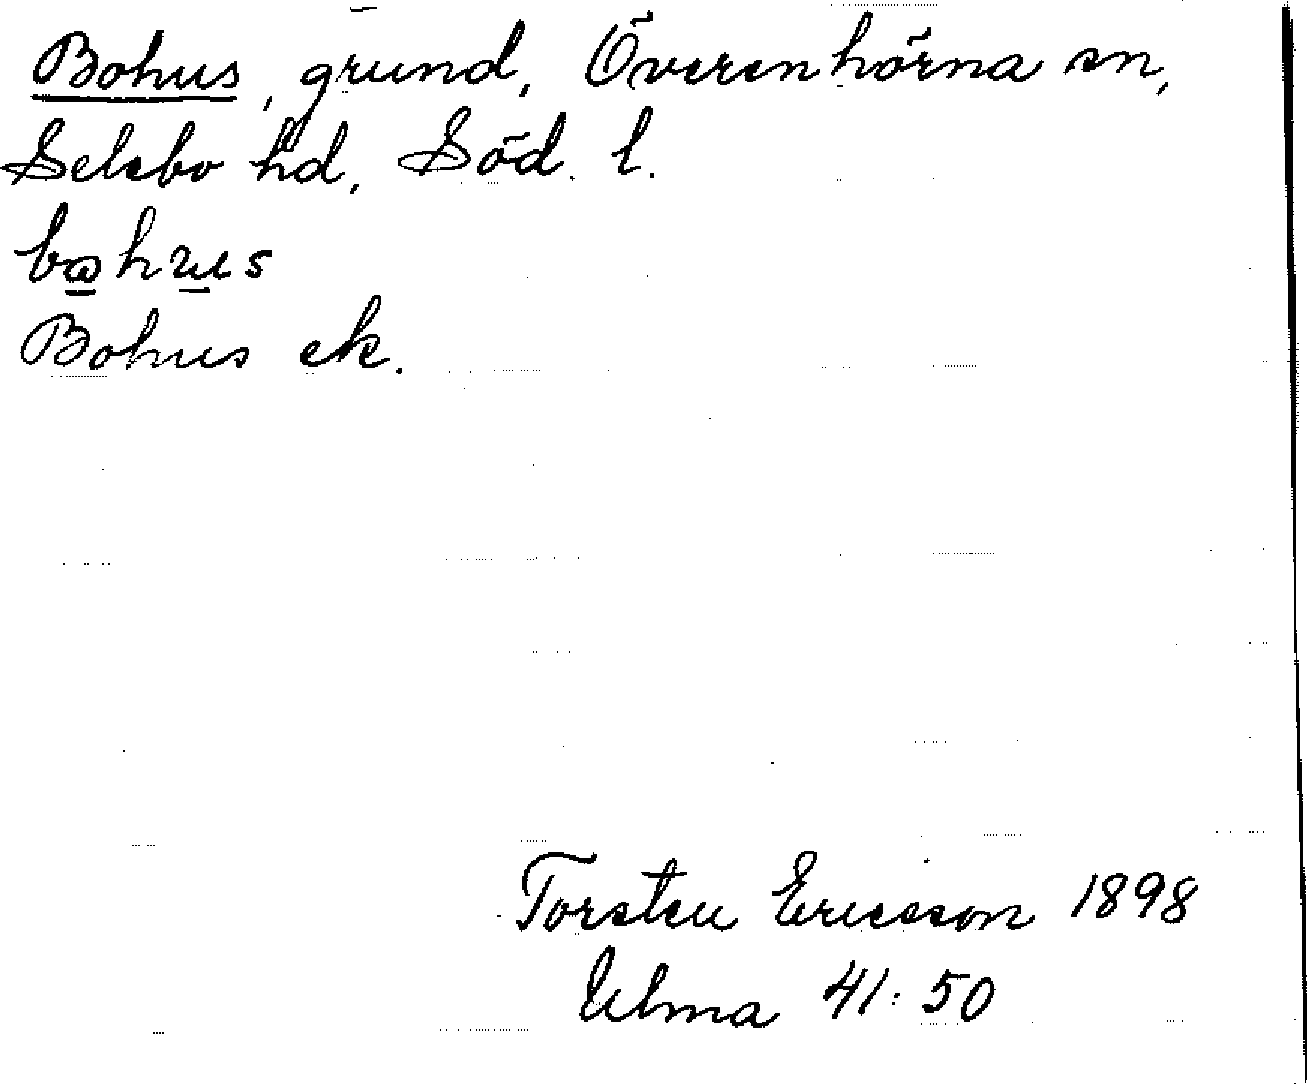 Bohus, grund, Överenhörna sn,
Selebo hd, Söd. l.
bohus
Bohus ek.
Torsten Ericsson 1898
Ulma 41:50